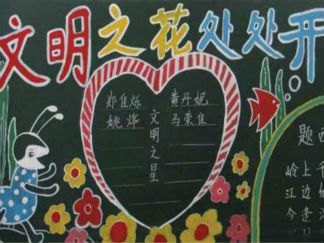 文明之花处处开
郑隹烁 黄丹妮
姚烨 马荣隹
文明之星
题
岭上
江边
今逢